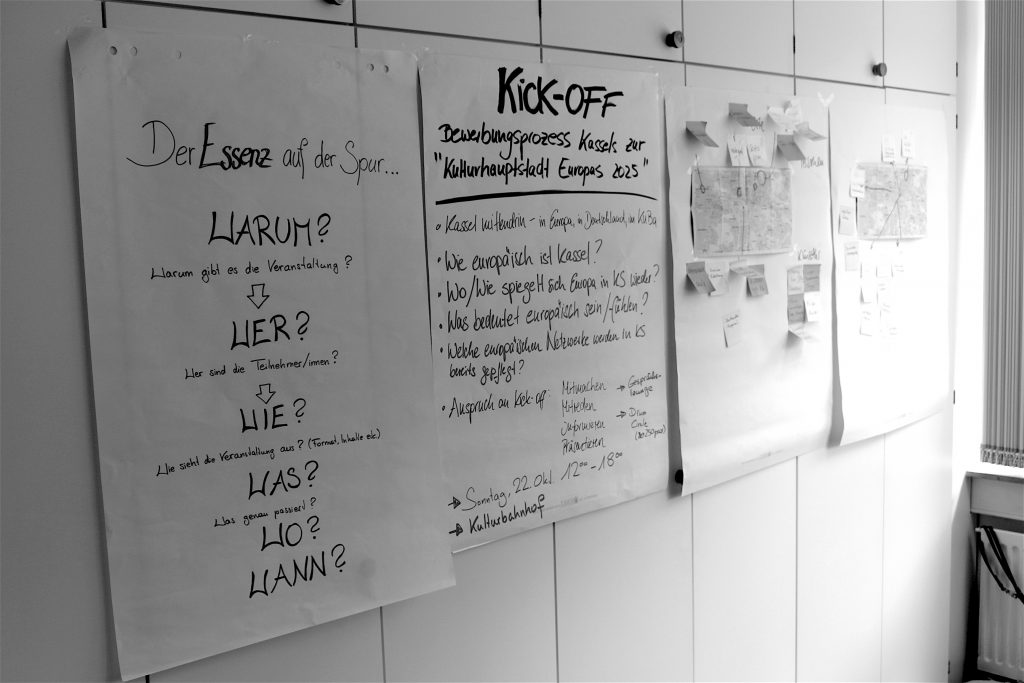 Der Essenz auf der Spur...
WARUM?
Warum gibt es die Veranstaltung?
WER?
Wer sind die Teilnehmer/innen?
WIE?
Wie sieht die Veranstaltung aus? (Format, Inhalte etc)
WAS?
Was genau passiert?
WO?
WANN?
KICK-OFF
Bewerbungsprozess Kassels zur
"Kulturhauptstadt Europas 2025"
• Kassel mittendrin - in Europa, in Deutschland, im KuBa
• Wie europäisch ist Kassel?
• Wo/Wie spiegelt sich Europa in KS wieder?
• Was bedeutet europäisch sein/-fühlen?
• Welche europäischen Netzwerke werden in KS
bereits gepflegt?
• Anspruch an Kick-off:
Mitmachen
Mitreden
Informieren
Präsentieren
→ Gesprächs-
lounge
→ Drum
Circle
→ Sonntag, 22. Okt. 12⁰⁰ - 18⁰⁰
→ Kulturbahnhof